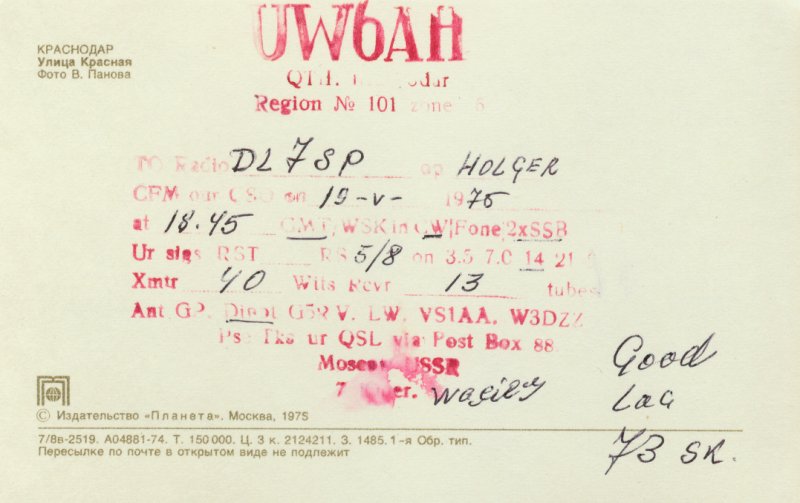 UW6AH
КРАСНОДАР
Улица Красная
Фото В. Панова
QTH.
Region № 101 zone
TO Radio DL7SP op HOLGER
CFM our QSO on 19-V- 1975
at 18.45 GMT/WSK in CW/Fone/2xSSB
Ur sigs RST RS 5/8 on 3.5 7.0 14 21
Xmtr 40 Wtts Rcvr 13 tubes
Ant GP. Dipol G5RV. LW. VS1AA. W3DZZ
Pse Tks ur QSL via Post Box 88
Moscow USSR
73 Wasiley
Good
Lac
73 SK.
© Издательство «Планета». Москва, 1975
7/8в-2519. А04881-74. Т. 150 000. Ц. 3 к. 2124211. З. 1485. 1-я Обр. тип.
Пересылке по почте в открытом виде не подлежит